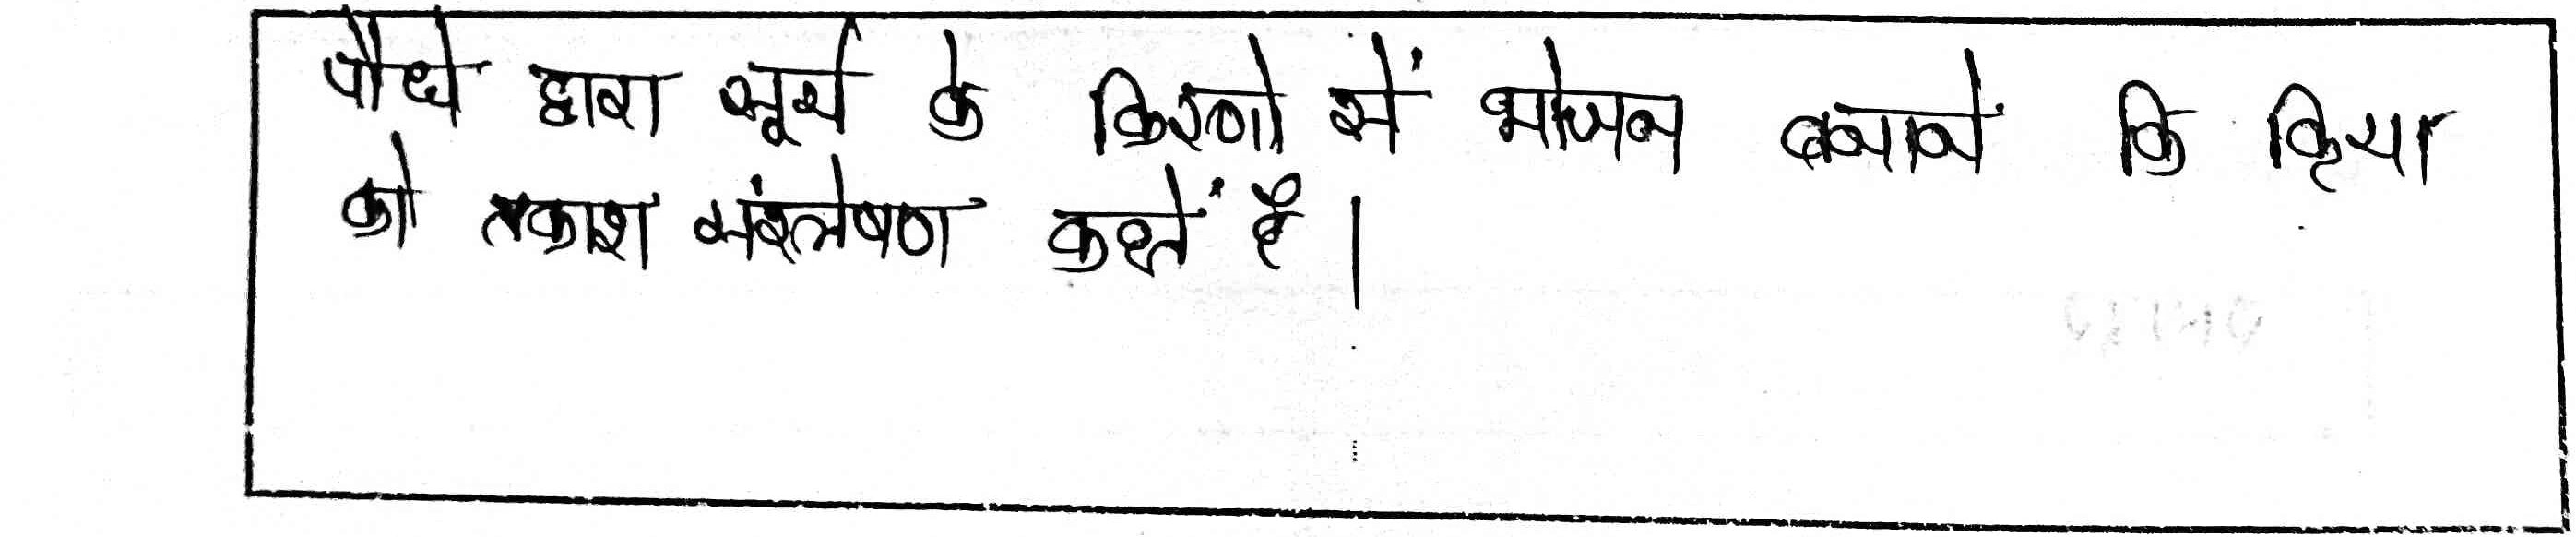 पौधे द्वारा सूर्य के किरणो सें भोजन बनानें कि क्रिया
को प्रकाश संश्लेषण कहतें है।